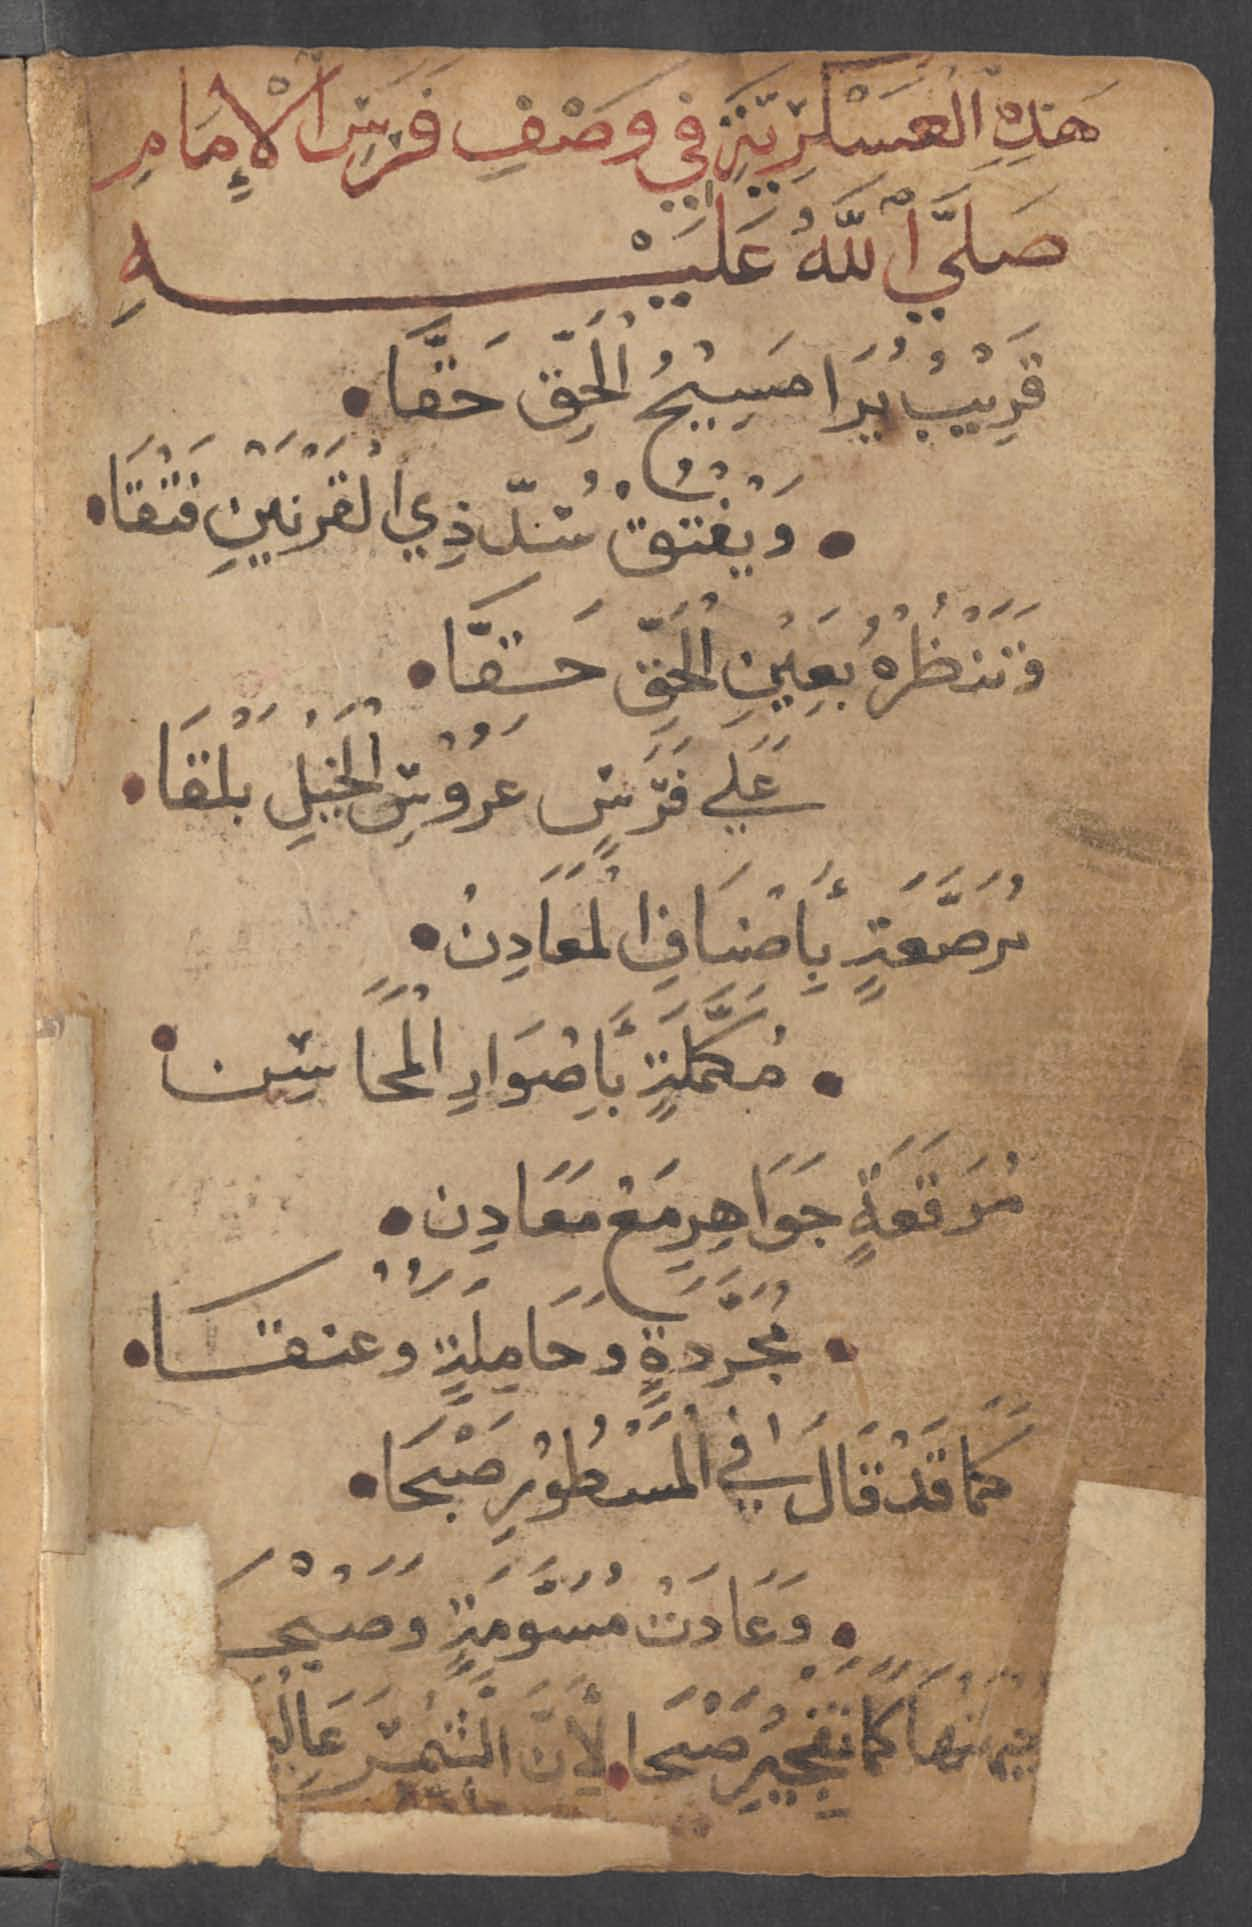 هَذِهِ الْعَسْكَرِيَّةِ فِي وَصْفِ فَرَسِ الْإِمَامِ
صَلَّي اللَّهُ عَلَيْهِ
قَرِيْبُ يُرَا مَسِيْحُ الْحَقِّ حَقَّا
وَيَفْتُقْ سُدّ ذِي الْقَرْنَيْنِ فَتْقَا
وَتَنْظُرُهُ بِعَيْنِ الْحَقِّ حَقَّا
عَلَي فَرَسٍ عَرُوْسِ الْخَيْلِ بَلْقَا
مُرَصَّعَةٍ بِأَصْنَافِ الْمَعَادِنْ
مُكَمَّلَةٍ بِأَصْوَارِ الْمَحَاسِن
مُرَقَعَةٍ جَوَاهِرِ مَعْ مَعَادِن
مُجَرَّدَةٍ وَحَامِلَةٍ وَعنقَا
كَمَا قَدْ قَالَ فِي الْمَسْطُوْرِ صَبْحَا
وَعَادَتْ مُسَوَّمَةٍ وَصَبْحَـ
كَمَا تَفْجِيْرِ صَبْحَا لِأَنَّ الشَّمْسَ